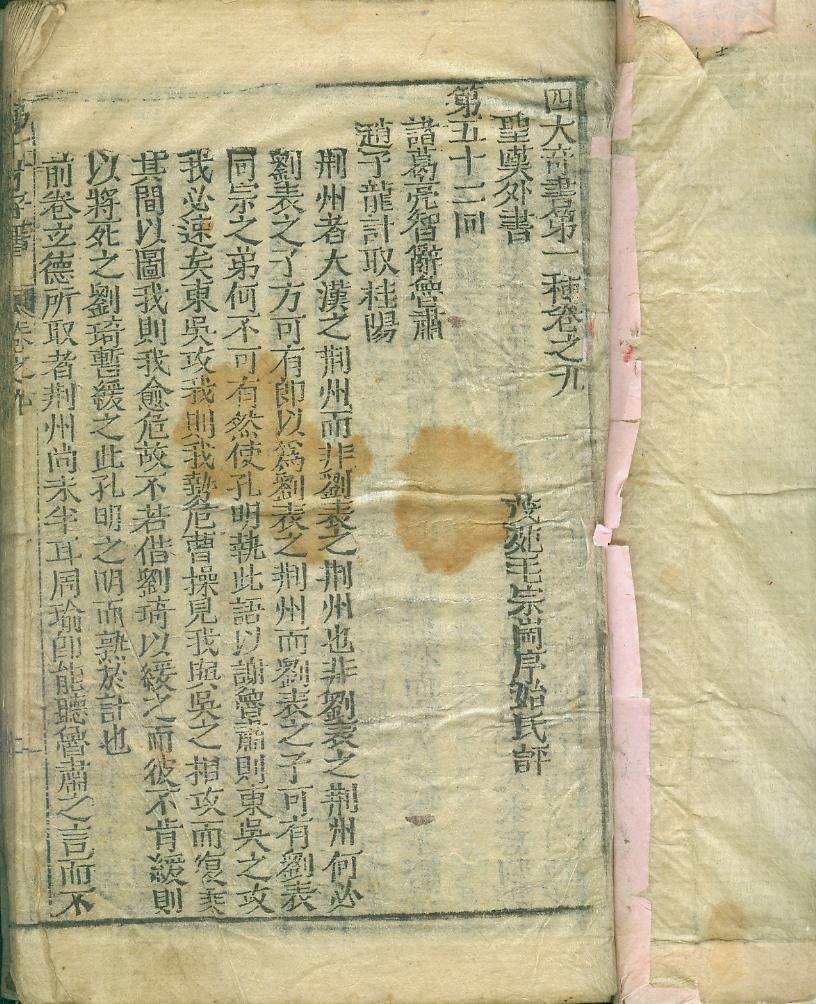 四大奇書第一種卷之九
聖嘆外書
茂苑毛宗崗序始氏評
第五十二回
諸葛亮智辭魯肅
趙子龍計取桂陽
荆州者大漢之荆州而非劉表之荆州也非劉表之荆州何必
劉表之子方可有卽以爲劉表之荆州而劉表之子可有劉表
同宗之弟何不可有然使孔明執此語以謝魯肅則東吳之攻
我必速矣東吳攻我則我勢危曹操見我與吳之相攻而復乘
其間以圖我則我愈危故不若借劉琦以緩之而彼不肯緩則
以將死之劉琦暫緩之此孔明之明而熟於計也
前卷玄德所取者荆州尚未半耳周瑜卽能聽魯肅之言而不
卷之九